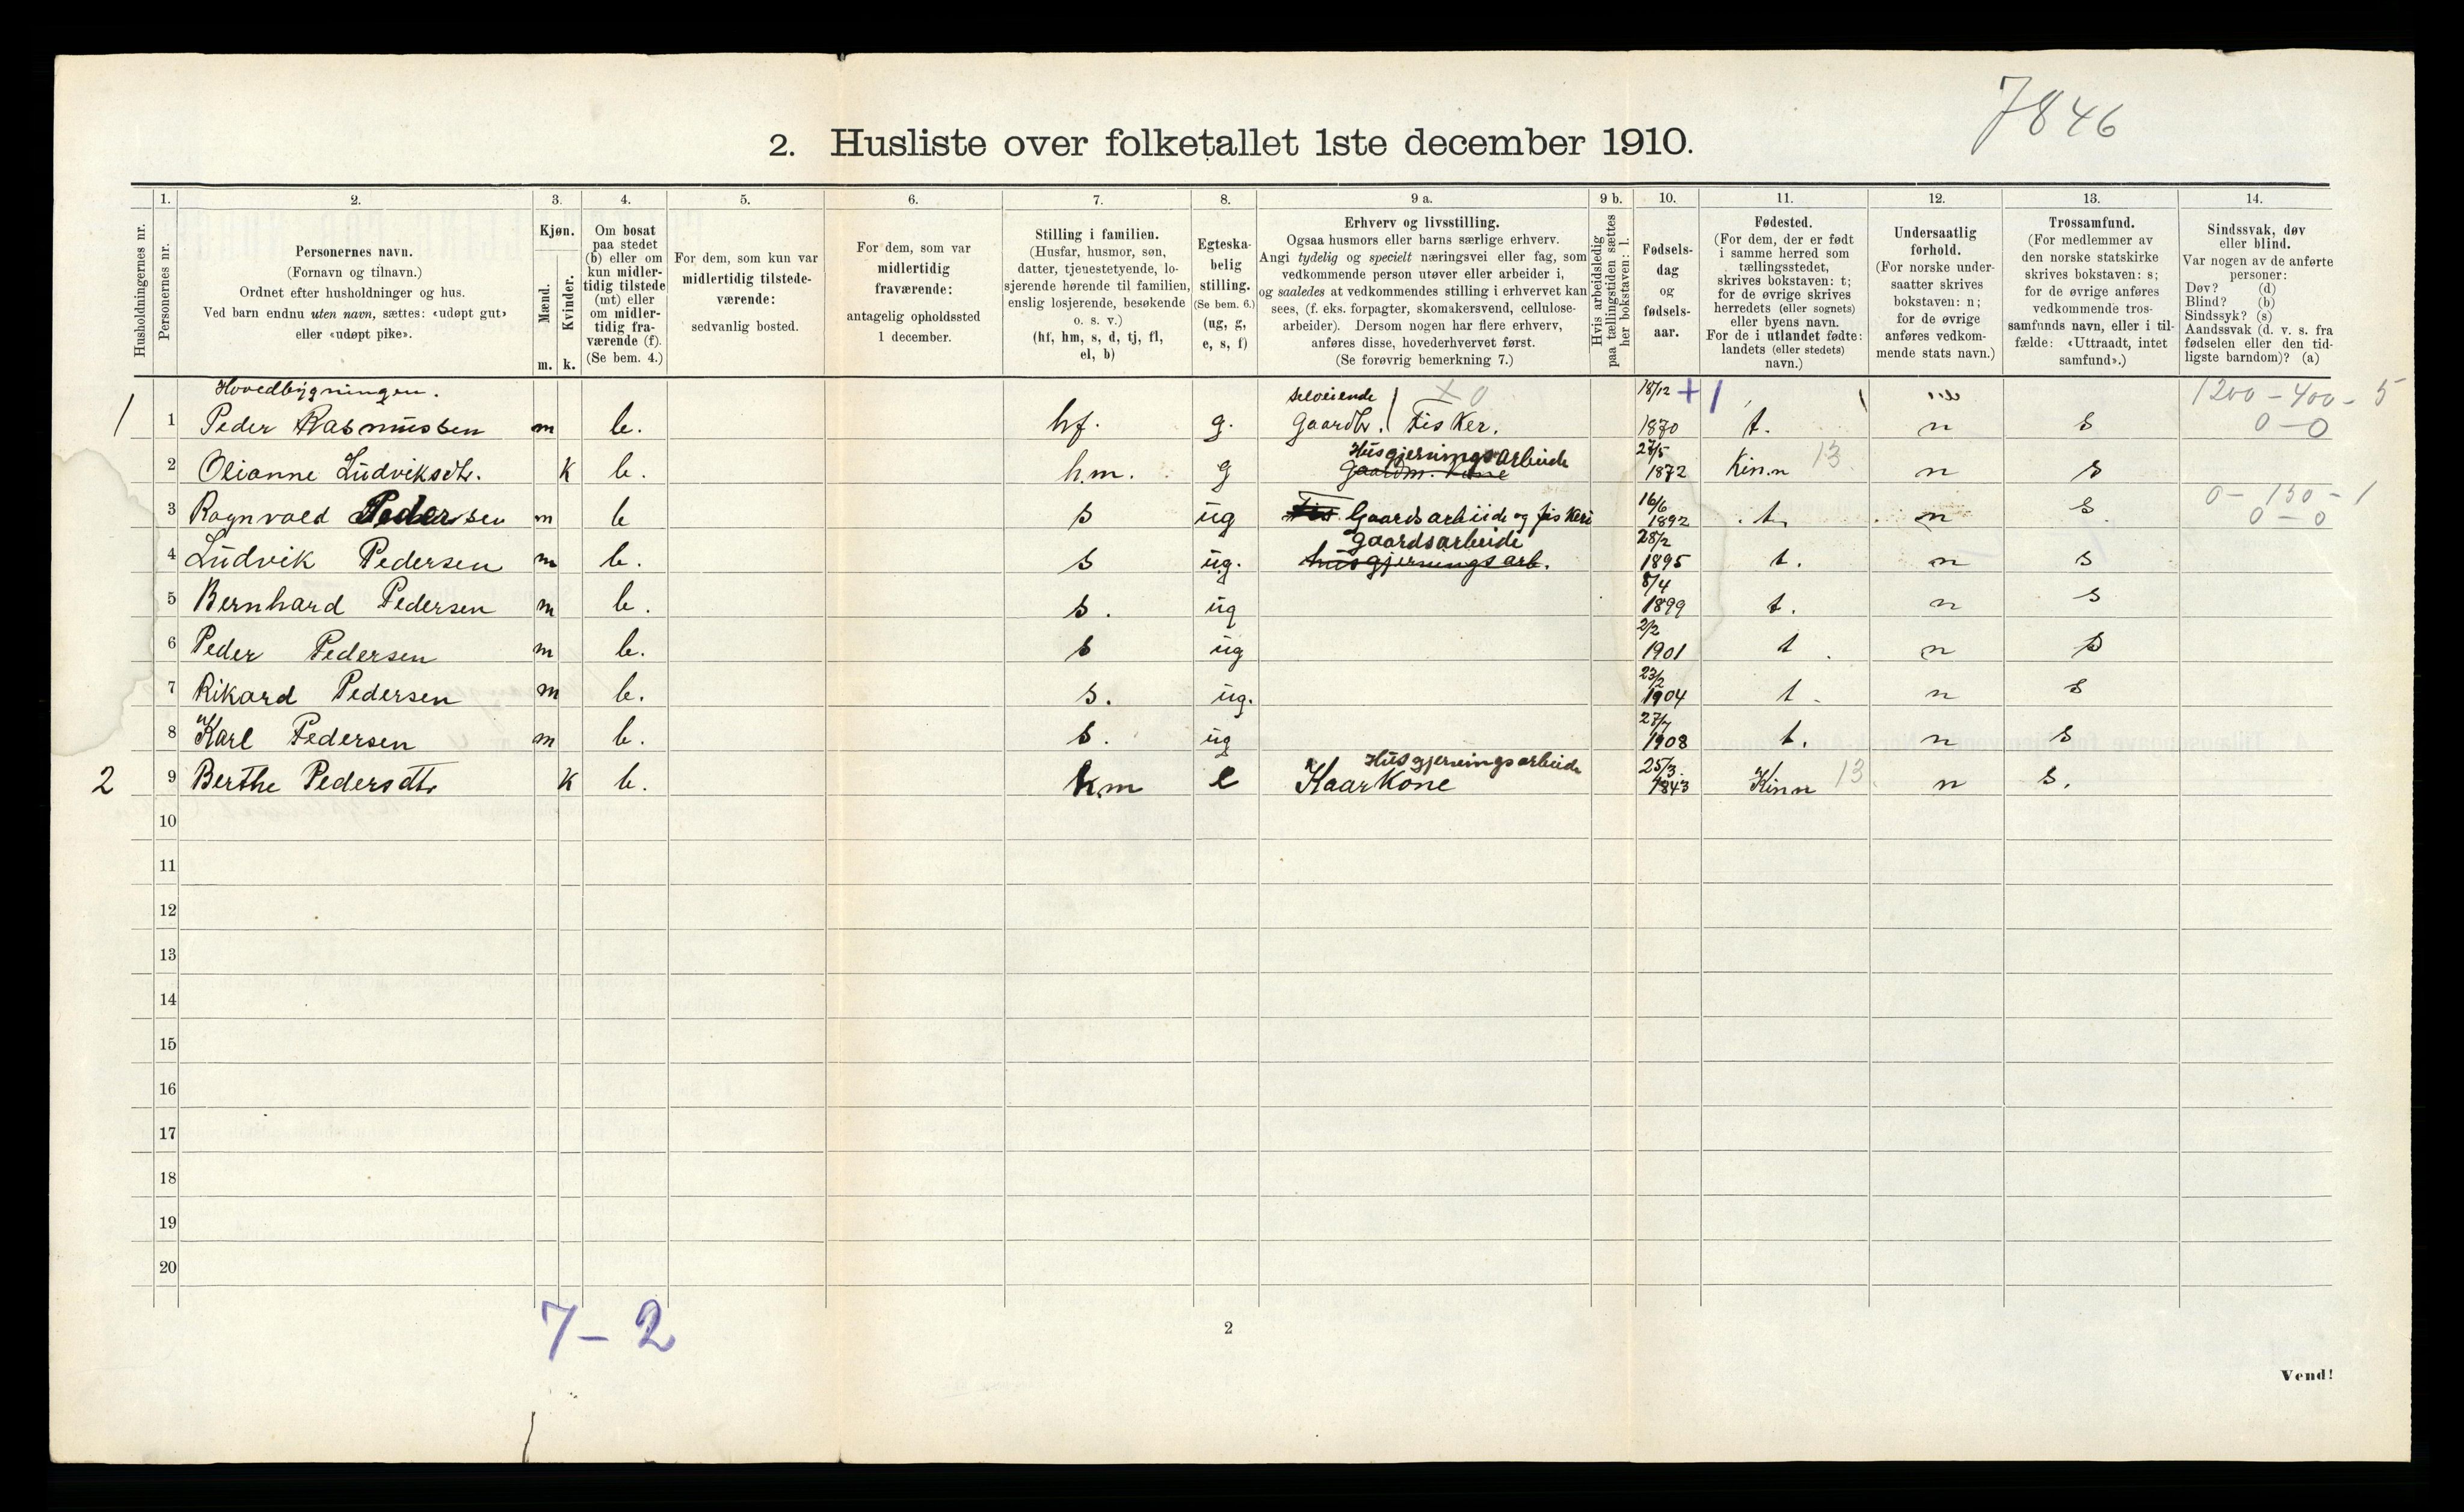 7846
2. Husliste over folketallet 1ste december 1910.
Husholdningernes nr.
1.
Personernes nr.
2.
Personernes navn.
(Fornavn og tilnavn.)
Ordnet efter husholdninger og hus.
Ved barn endnu uten navn, sættes: «udøpt gut»
eller «udøpt pike».
3.
Kjøn.
Mænd.
Kvinder.
m. k.
4.
Om bosat
paa stedet
(b) eller om
kun midler-
tidig tilstede
(mt) eller
om midler-
tidig fra-
værende (f).
(Se bem. 4.)
5.
For dem, som kun var
midlertidig tilstede-
værende:
sedvanlig bosted.
6.
For dem, som var
midlertidig
fraværende:
antagelig opholdssted
1 december.
7.
Stilling i familien.
(Husfar, husmor, søn,
datter, tjenestetyende, lo-
sjerende hørende til familien,
enslig losjerende, besøkende
o. s. v.)
(hf, hm, s, d, tj, fl,
el, b)
8.
Egteska-
belig
stilling.
(Se bem. 6.)
(ug, g,
e, s, f)
9 a.
Erhverv og livsstilling.
Ogsaa husmors eller barns særlige erhverv.
Angi tydelig og specielt næringsvei eller fag, som
vedkommende person utøver eller arbeider i,
og saaledes at vedkommendes stilling i erhvervet kan
sees, (f. eks. forpagter, skomakersvend, cellulose-
arbeider). Dersom nogen har flere erhverv,
anføres disse, hovederhvervet først.
(Se forøvrig bemerkning 7.)
9 b.
Hvis arbeidsledig
paa tællingstiden sættes
her bokstaven: l.
10.
Fødsels-
dag
og
fødsels-
aar.
11.
Fødested.
(For dem, der er født
i samme herred som
tællingsstedet,
skrives bokstaven: t;
for de øvrige skrives
herredets (eller sognets)
eller byens navn.
For de i utlandet fødte:
landets (eller stedets)
navn.)
12.
Undersaatlig
forhold.
(For norske under-
saatter skrives
bokstaven: n;
for de øvrige
anføres vedkom-
mende stats navn.)
13.
Trossamfund.
(For medlemmer av
den norske statskirke
skrives bokstaven: s;
for de øvrige anføres
vedkommende tros-
samfunds navn, eller i til-
fælde: «Uttraadt, intet
samfund».)
14.
Sindssvak, døv
eller blind.
Var nogen av de anførte
personer:
Døv? (d)
Blind? (b)
Sindssyk? (s)
Aandssvak (d. v. s. fra
fødselen eller den tid-
ligste barndom)? (a)
Hovedbygningen. selveiende x 0 18/12 + 1 1200 - 400 - 5
1 1 Peder Rasmussen m b. hf. g. gaardbr. Fisker. 1870 t. n s 0 - 0
Husgjerningsarbeide 27/5
2 Olianne Ludviksdtr. k b. h.m. g gaardm. kone 1872 Kinn 13 n s
16/6 0 - 150 - 1
3 Ragnvald Pedersen m b s ug Fis. Gaardsarbeide og fiskeri 1892 t. n s 0 - 0
gaardsarbeide 28/2
4 Ludvik Pedersen m b. s ug. husgjerningsarb. 1895 t. n s
8/4
5 Bernhard Pedersen m b. s. ug 1899 t. n s
2/2
6 Peder Pedersen m b. s ug 1901 t n s
23/2
7 Rikard Pedersen m b. s. ug. 1904 t n s
8 Karl Pedersen m b. s. ug 1908 t. n s
Husgjerningsarbeide 25/3
2 9 Berthe Pedersdtr k b. hm e Kaarkone 1843 Kinn 13 n s.
10
11
12
13
14
15
16
17
18
19
20
7 - 2
2
Vend!